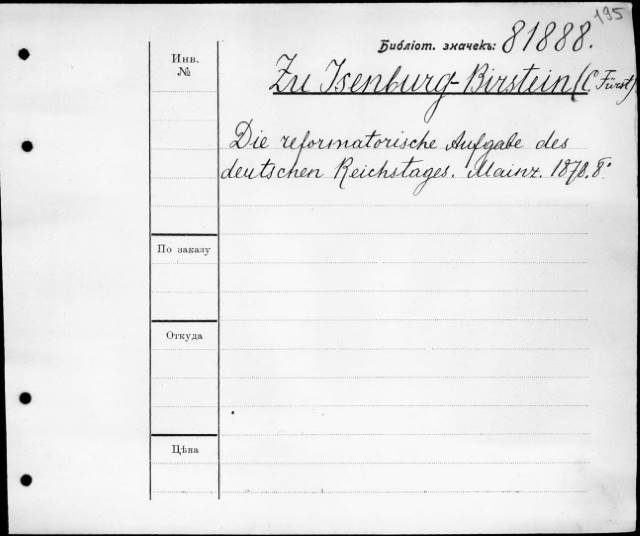 195
Библіот. значекъ: 81888.
Инв.
№
Zu Isenburg-Birstein (C. Fürst)
Die reformatorische Aufgabe des
deutschen Reichstages. Mainz. 1878. 8°
По заказу
Откуда
Цѣна